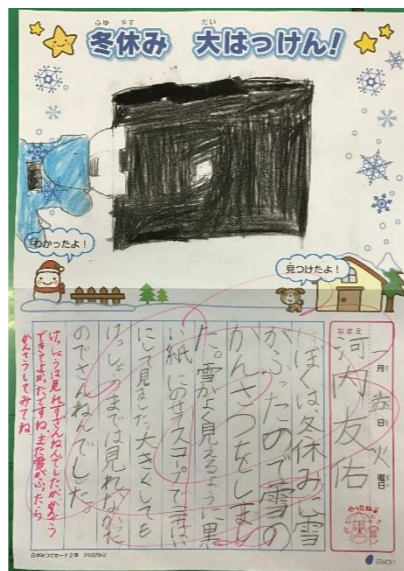 冬休み 大はっけん!
ふゆ やす だい
わかったよ!
見つけたよ!
なまえ
河内 友佑
一月 日 火曜日
ぼくは、冬休みに雪
がふったので雪の
かんさつをしまし
た。雪がよく見えるように黒
い紙にのせ
にして見ました。大きくしても
けっしょうまでは見れなかった
のでざんねんでした。
けっしょうは見れずざんねんでしたが、かんさつ
できてよかったですね。また雪がふったら
かんさつしてみてね。